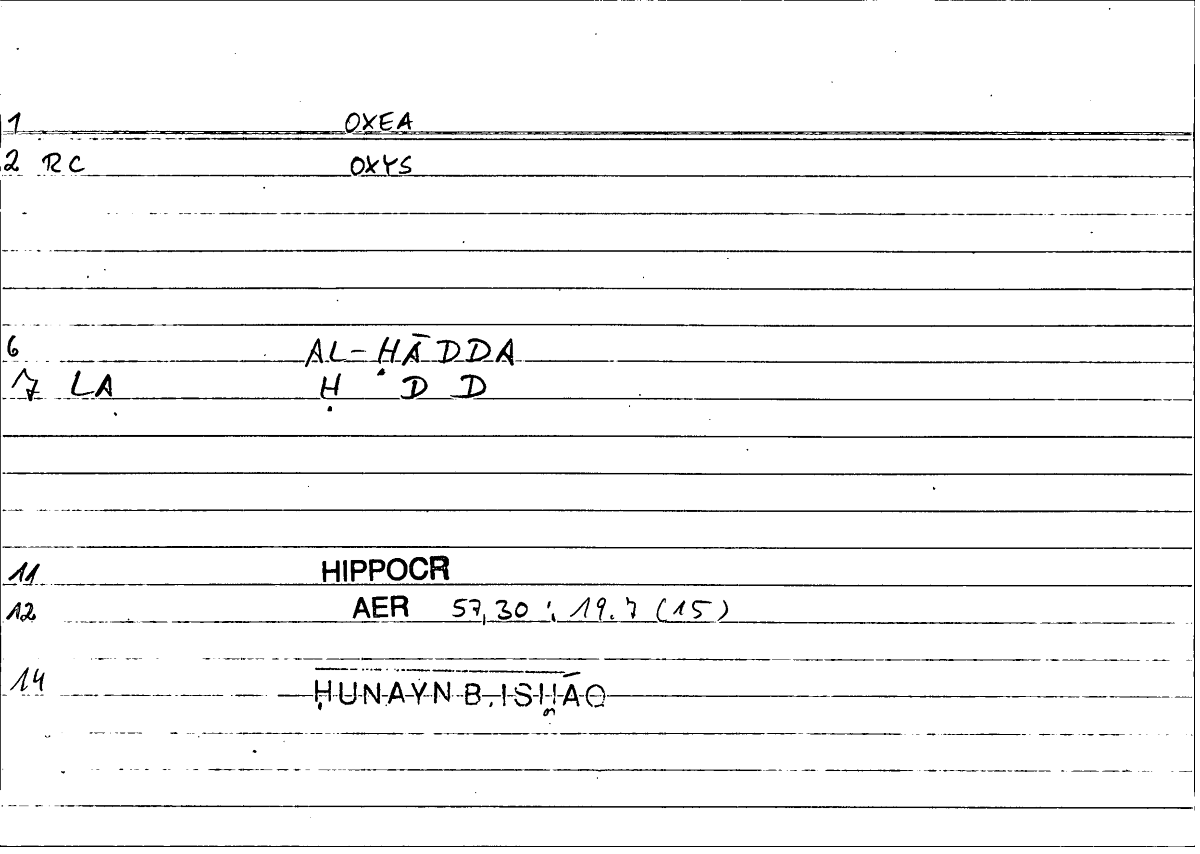 1 OXEA
2 RC OXYS
6 AL-ḤĀDDA
7 LA Ḥ D D
11 HIPPOCR
12 AER 57,30 ; 19.7 (15)
14 ḤUNAYN B. ISḤĀQ